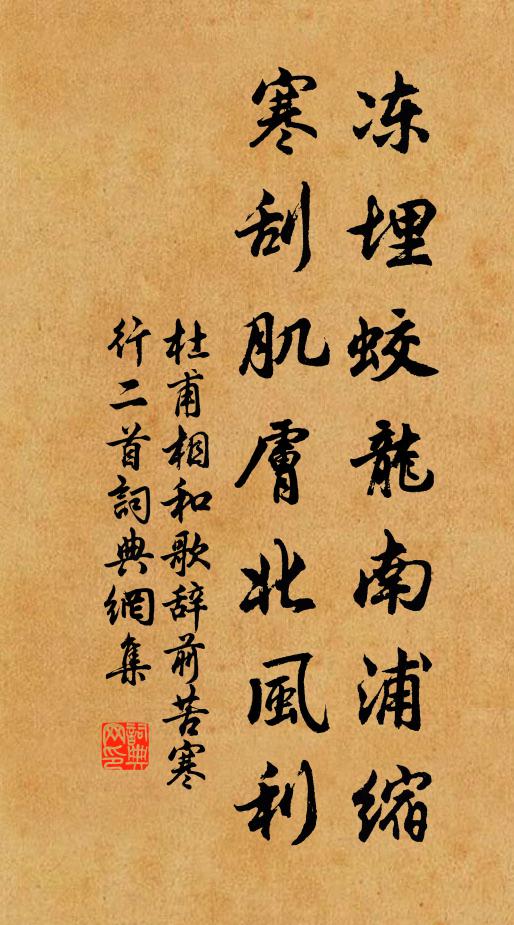 冻埋蛟龍南浦縮
寒刮肌膚北風利
杜甫相和歌辞前苦寒
行二首詞典網集
詞典
网印